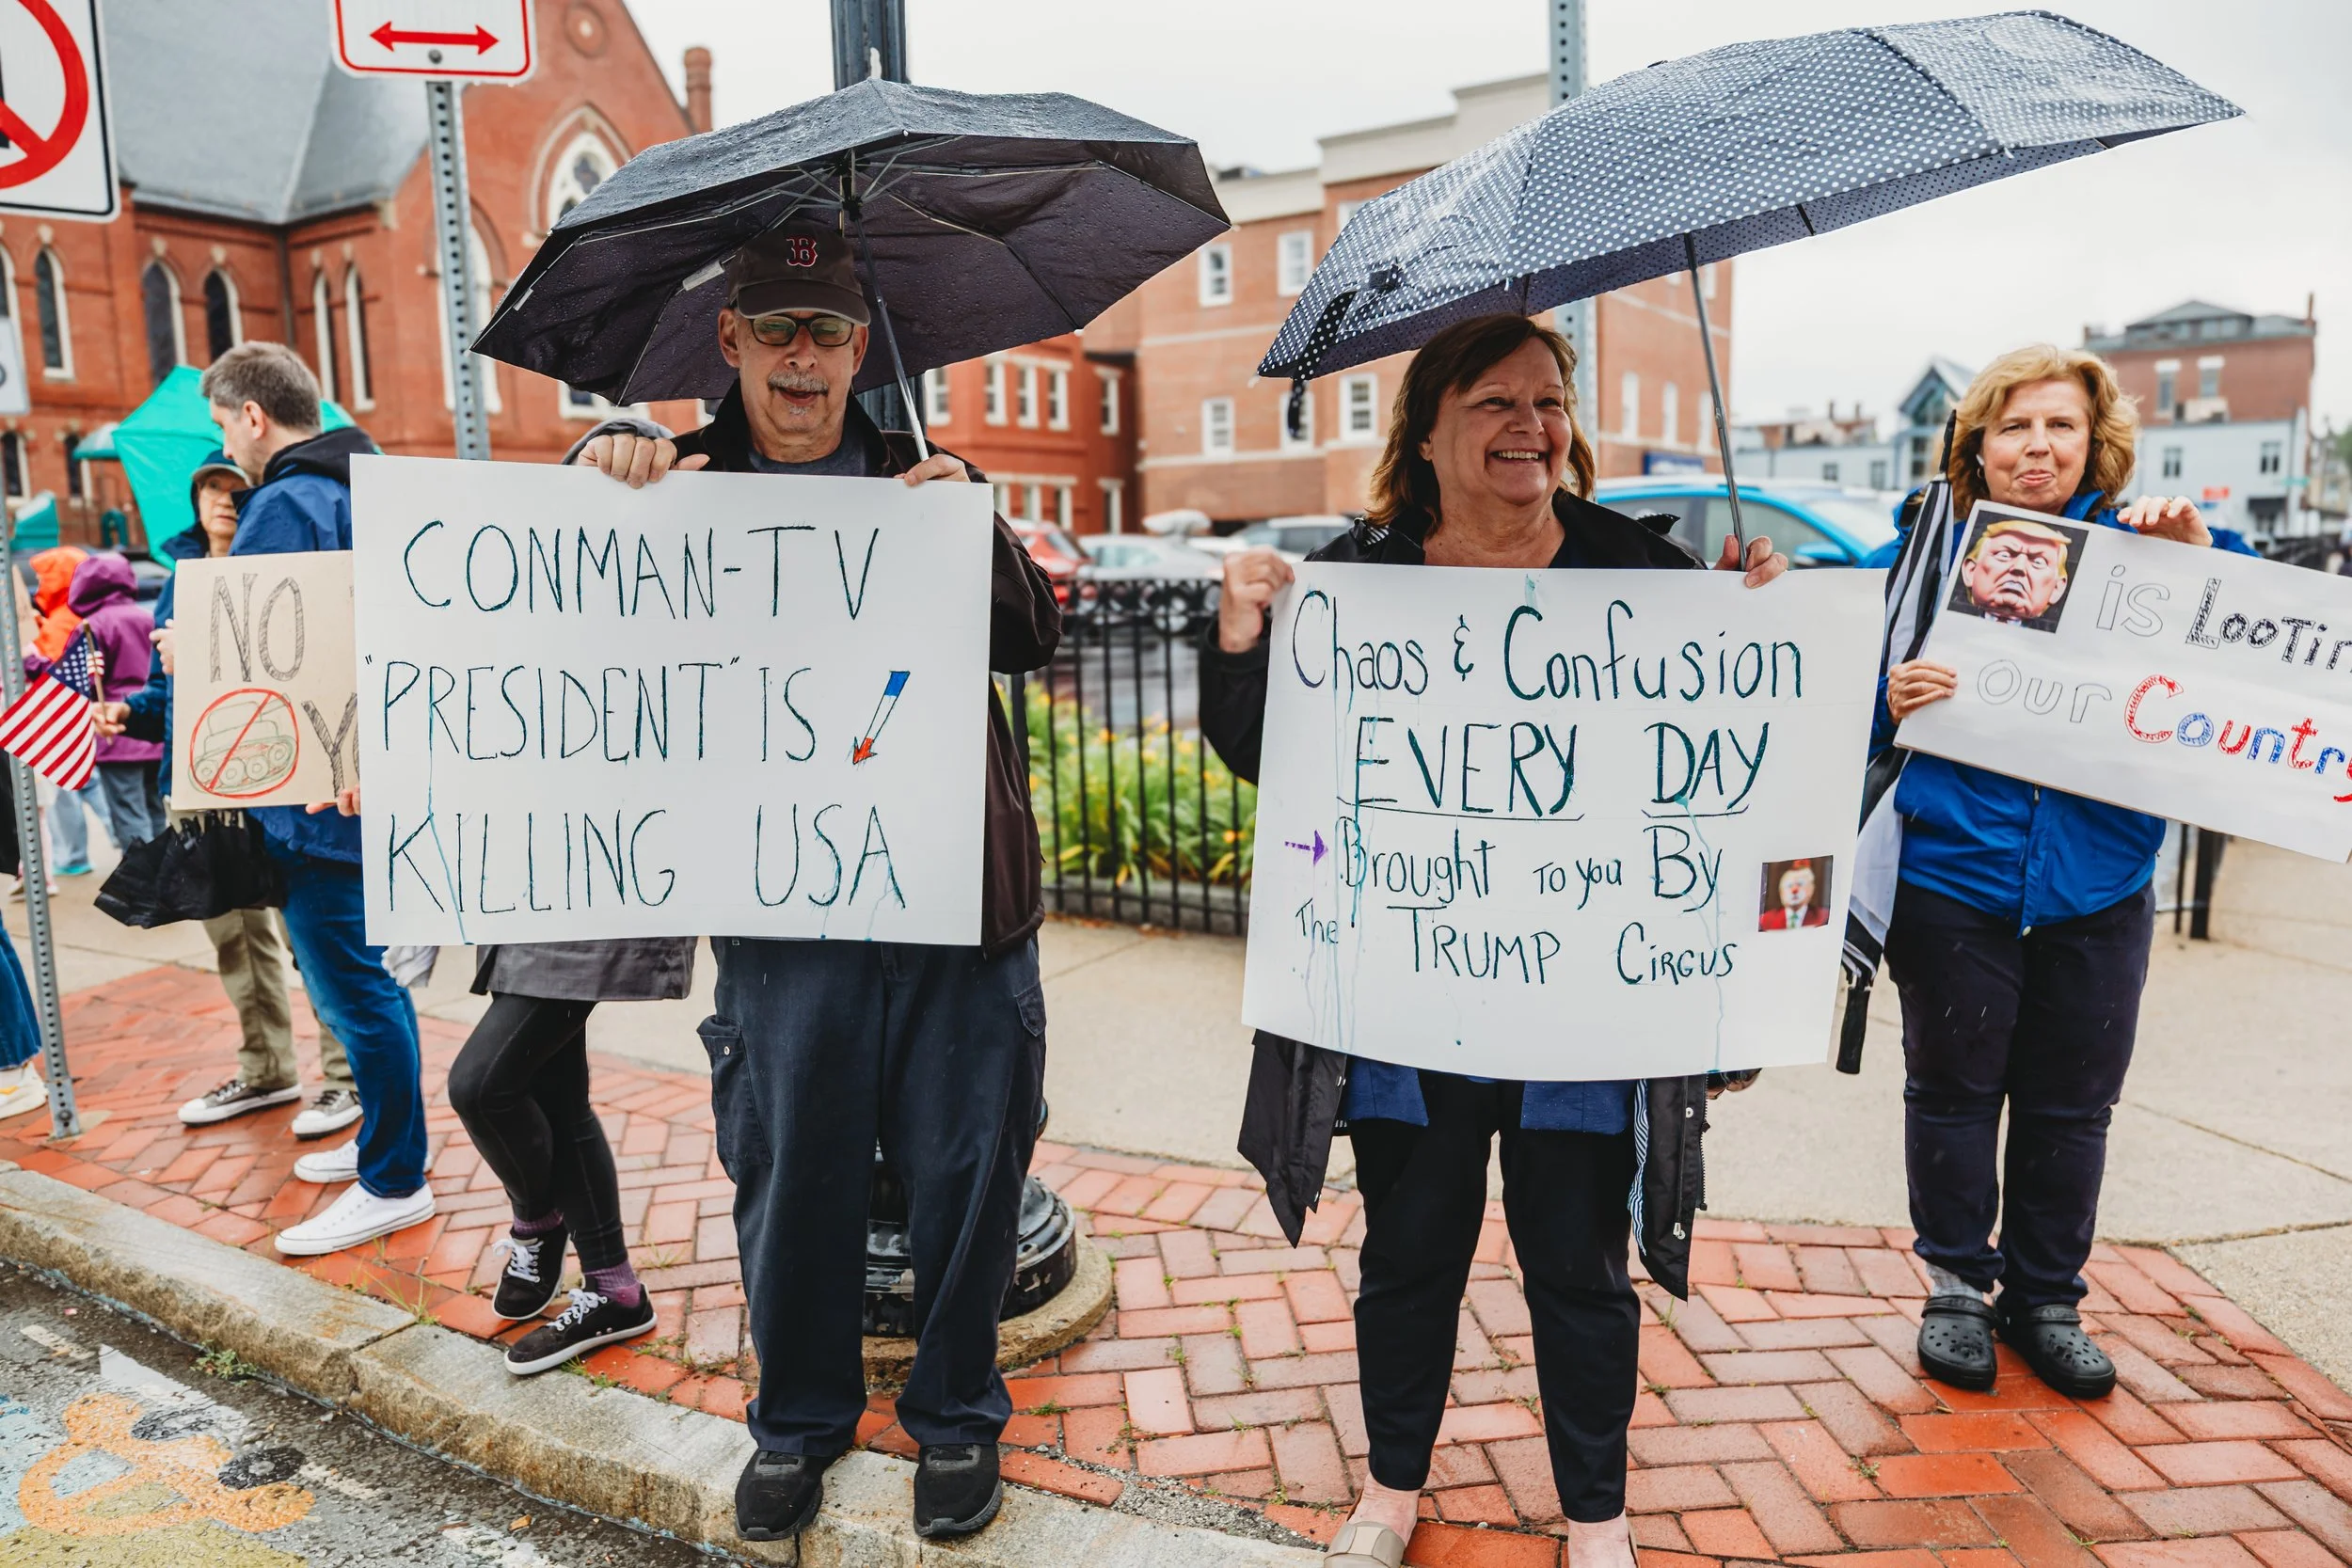 B
NO
CONMAN-TV
"PRESIDENT" IS
KILLING USA
Chaos & Confusion
EVERY DAY
Brought To you By
The TRUMP CIRCUS
is LOOTIN
OUR Country